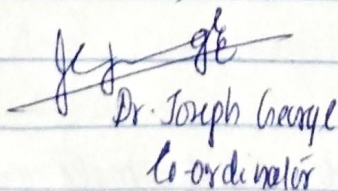 Dr. Joseph George
Co-ordinator